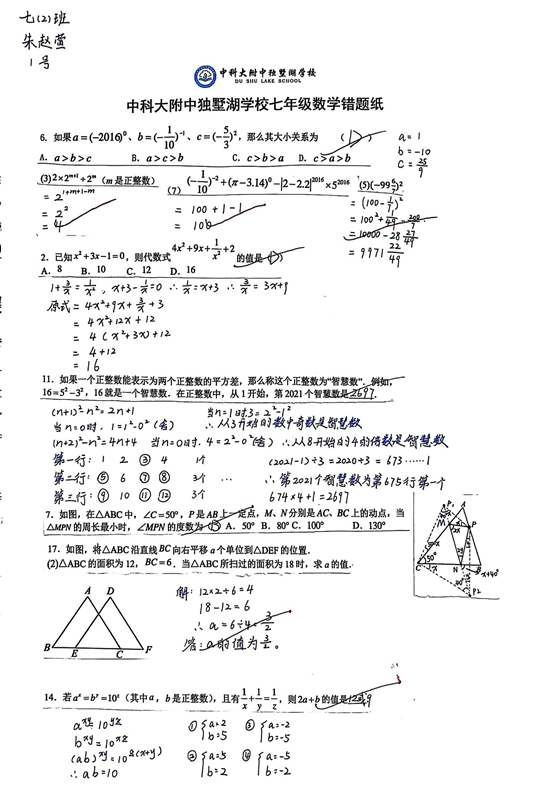 七(2)班
朱赵萱
1号
中科大附中独墅湖学校
DU SHU LAKE SCHOOL
中科大附中独墅湖学校七年级数学错题纸
6. 如果a=(-2016)⁰、b=(-1/10)⁻¹、c=(-5/3)²，那么其大小关系为（D）
a=1
b=-10
c=25/9
A. a>b>c B. a>c>b C. c>b>a D. c>a>b
(3) 2×2^(m+1)÷2^m (m是正整数)
=2^(1+m+1-m)
=2²
=4
(7) (-1/10)⁻²+(π-3.14)⁰-|2-2.2|^2016×5^2016
=100+1-1
=100
(5)(-99 6/7)²
=(100-1/7)²
=100²+1/49-200/7
=10000-28 27/49
=9971 22/49
2. 已知x²+3x-1=0，则代数式4x²+9x+1/x²+2的值是（D）
A. 8 B. 10 C. 12 D. 16
1+3/x=1/x², x+3-1/x=0 ∴1/x=x+3 ∴3/x=3x+9
原式=4x²+9x+3/x+3
=4x²+12x+12
=4(x²+3x)+12
=4+12
=16
11. 如果一个正整数能表示为两个正整数的平方差，那么称这个正整数为"智慧数". 例如，
16=5²-3²，16就是一个智慧数. 在正整数中，从1开始，第2021个智慧数是2697.
(n+1)²-n²=2n+1 当n=1时3=2²-1²
当n=0时, 1=1²-0²(舍) ∴从3开始的数中奇数是智慧数
(n+2)²-n²=4n+4 当n=0时, 4=2²-0²(舍) ∴从8开始的4的倍数是智慧数
第一行: 1 2 ③ 4 1个 (2021-1)÷3=2020÷3=673……1
第二行: ⑤ 6 ⑦ ⑧ 3个 … ∴第2021个智慧数为第675行第一个
第三行: ⑨ 10 ⑪ ⑫ 3个 674×4+1=2697
7. 如图，在△ABC中，∠C=50°，P是AB上一定点，M、N分别是AC、BC上的动点，当
△MPN的周长最小时，∠MPN的度数为（B）A. 50° B. 80° C. 100° D. 130°
17. 如图，将△ABC沿直线BC向右平移a个单位到△DEF的位置.
(2)△ABC的面积为12，BC=6. 当△ABC所扫过的面积为18时，求a的值.
A D
B E C F
解: 12×2÷6=4
18-12=6
∴a=6÷4=3/2
答: a的值为3/2.
14. 若a^x=b^y=10^z (其中a，b是正整数)，且有1/x+1/y=1/z，则2a+b的值是12或9
a^xy=10^yz ①{a=2 b=5 ③{a=-2 b=-5
b^xy=10^xz
(ab)^xy=10^z(x+y) ②{a=5 b=2 ④{a=-5 b=-2
∴ab=10